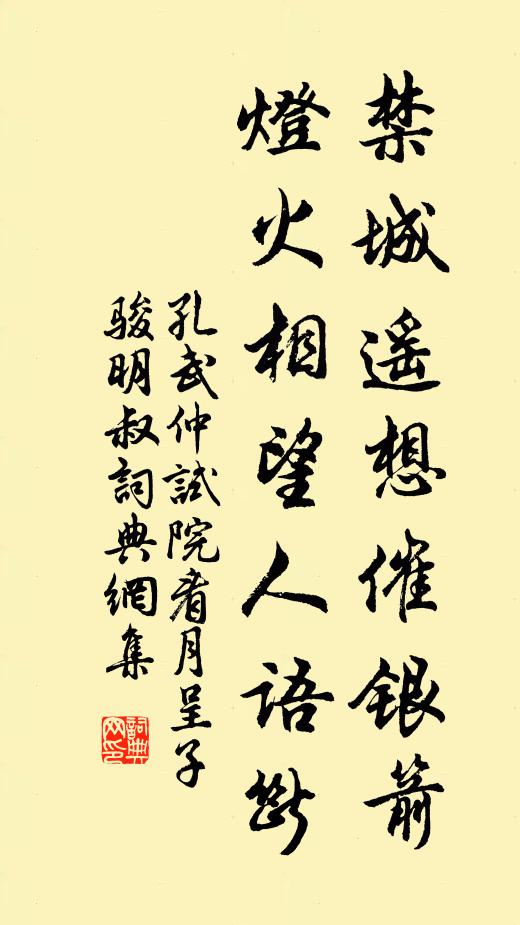 禁城遥想催銀箭
燈火相望人語斷
孔武仲試院看月呈子
駿明叔詞典網集
詞典
网印